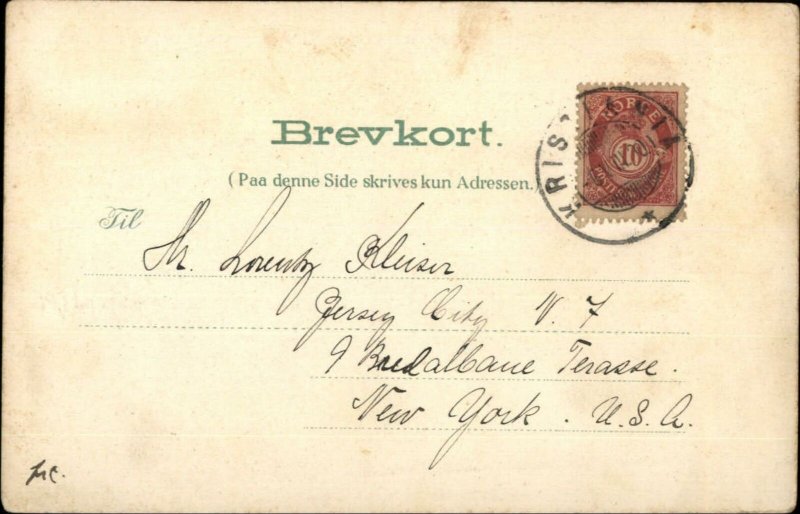 Brevkort.
(Paa denne Side skrives kun Adressen.)
NORGE
10
KRISTIANIA
Til
Hr. Lorentz Kleiser
Jersey City N. J
9 Bredalbane Terasse.
New York. U.S.A.